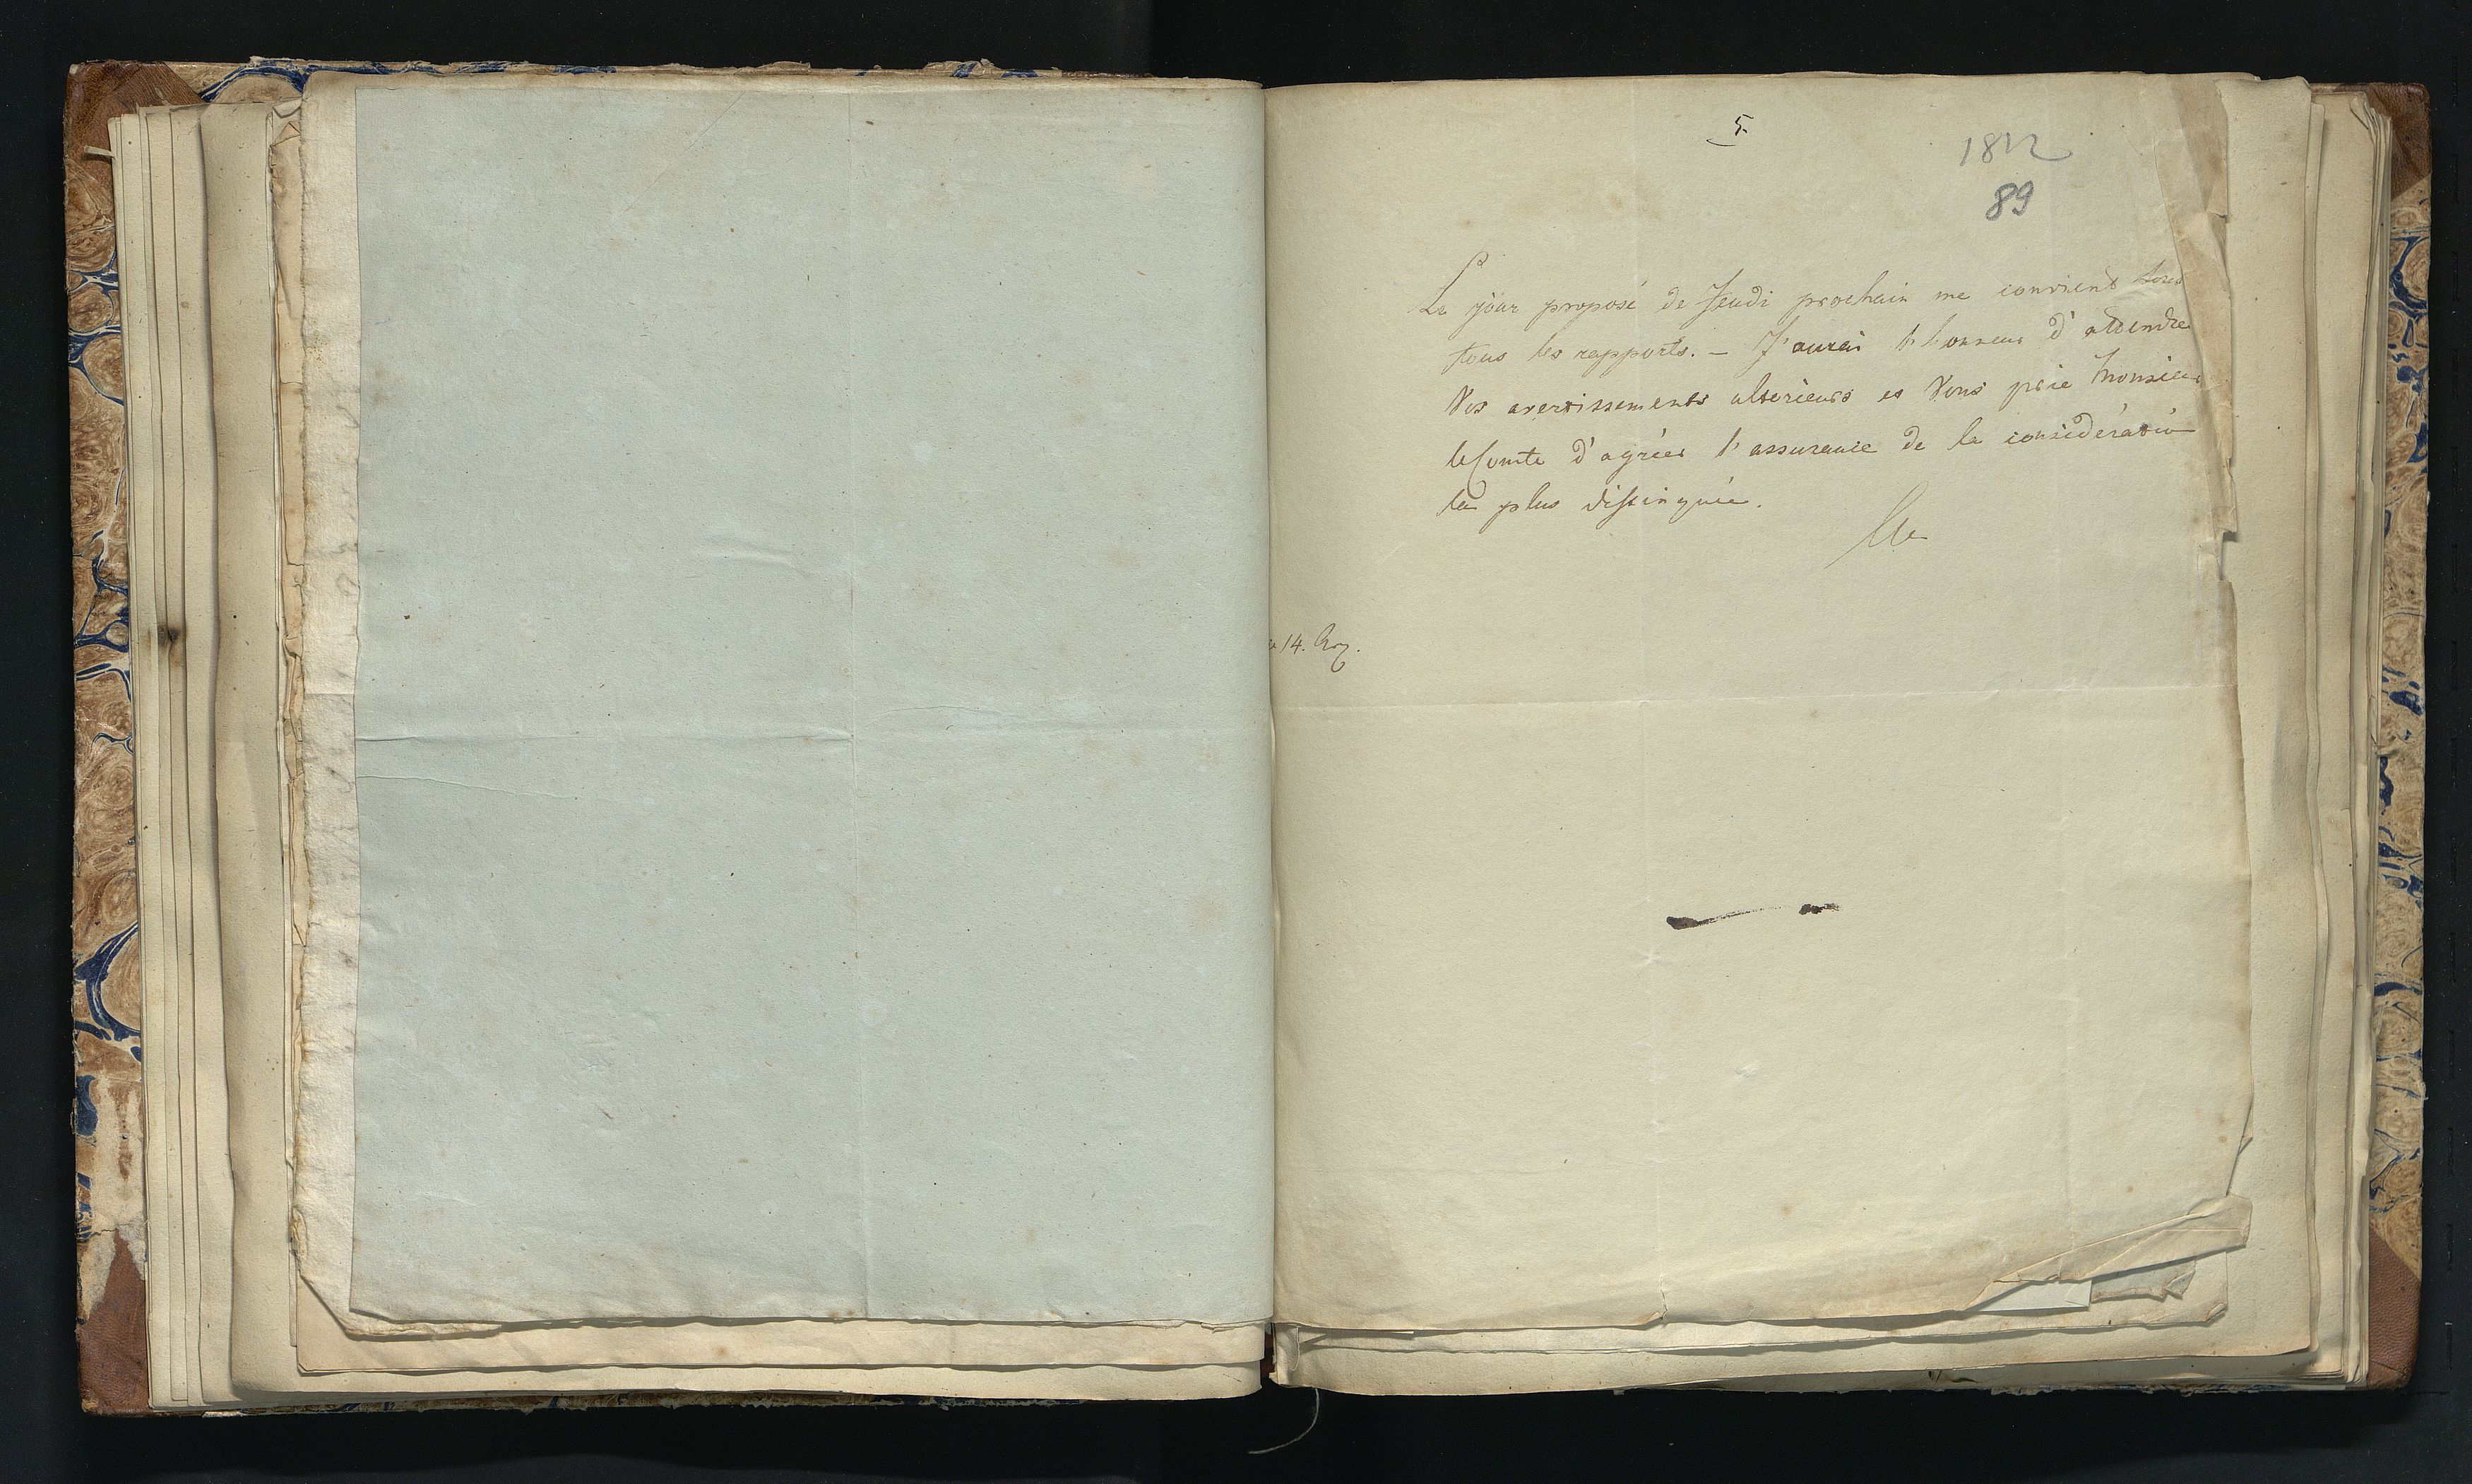 5.
1812
89
Le jour proposé de Jeudi prochain me convient sous
tous les rapports. – J'aurai l'honneur d'attendre
Vos avertissements ulterieurs et Vous prie Monsieur
le Comte d'agréer l'assurance de la considération
la plus distinguée.
14.